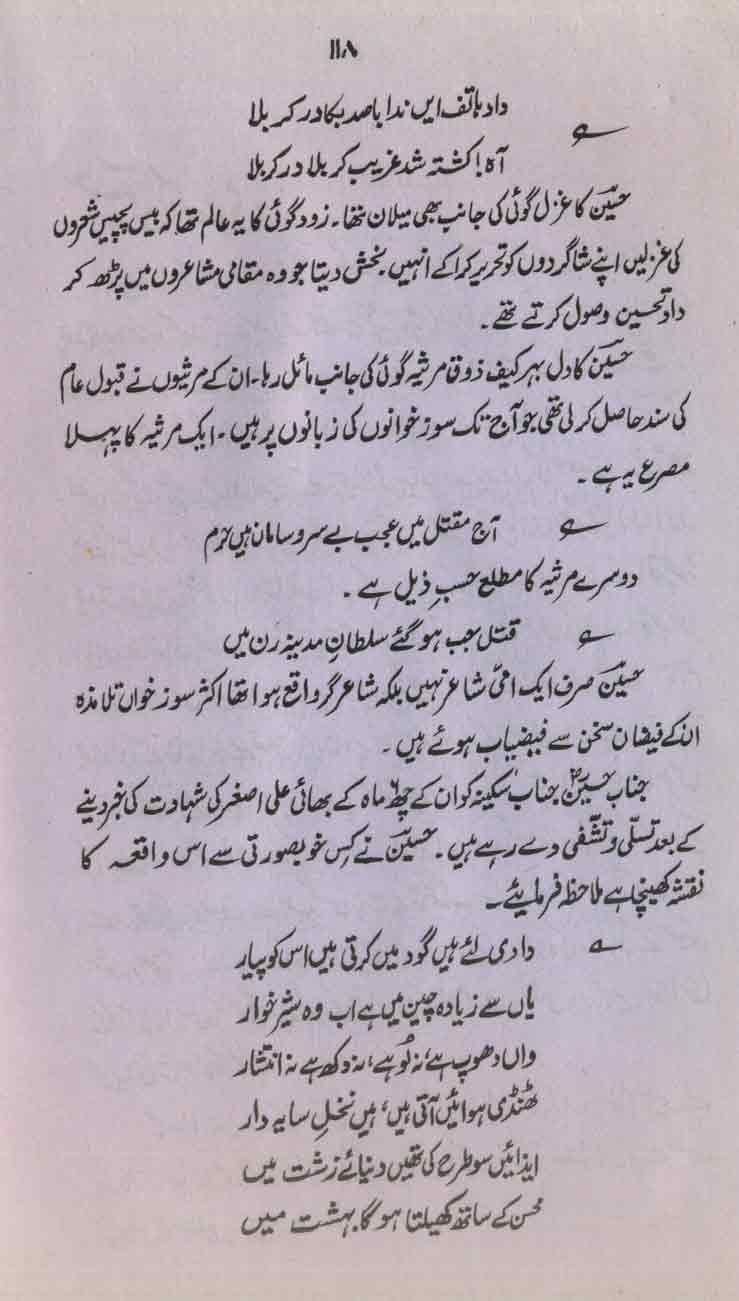 ۱۱۸
داد ہاتف ایں ندا با صد بکا در کربلا
آہ! کشتہ شد غریب کربلا در کربلا
حسینؔ کا غزل گوئی کی جانب بھی میلان تھا۔ زود گوئی کا یہ عالم تھا کہ بیس پچیس شعروں
کی غزلیں اپنے شاگردوں کو تحریر کرا کے انہیں بخش دیتا جو وہ مقامی مشاعروں میں پڑھ کر
داد تحسین وصول کرتے تھے۔
حسینؔ کا دل بہر کیف ذوق مرثیہ گوئی کی جانب مائل رہا۔ ان کے مرثیوں نے قبول عام
کی سند حاصل کر لی تھی جو آج تک سوز خوانوں کی زبانوں پر ہیں۔ ایک مرثیہ کا پہلا
مصرع یہ ہے۔
آج مقتل میں عجب بے سرو سامان ہیں حرم
دوسرے مرثیہ کا مطلع حسبِ ذیل ہے۔
قتل جب ہو گئے سلطانِ مدینہ رن میں
حسینؔ صرف ایک امّی شاعر نہیں بلکہ شاعر گر واقع ہوا تھا اکثر سوز خواں تلامذہ
ان کے فیضان سخن سے فیضیاب ہوئے ہیں۔
جناب حسینؑ جناب سکینہ کو ان کے چھ ۶ ماہ کے بھائی علی اصغر کی شہادت کی خبر دینے
کے بعد تسلّی و تشفّی دے رہے ہیں۔ حسینؔ نے کس خوبصورتی سے اس واقعہ کا
نقشہ کھینچا ہے ملاحظہ فرمایئے۔
دادی لئے ہیں گود میں کرتی ہیں اس کو پیار
یاں سے زیادہ چین میں ہے اب وہ شیر خوار
واں دھوپ ہے، نہ لُو ہے، نہ دکھ ہے نہ انتشار
ٹھنڈی ہوائیں آتی ہیں، ہیں نخلِ سایہ دار
ایذائیں سو طرح کی تھیں دنیائے زشت میں
محسن کے ساتھ کھیلتا ہو گا بہشت میں